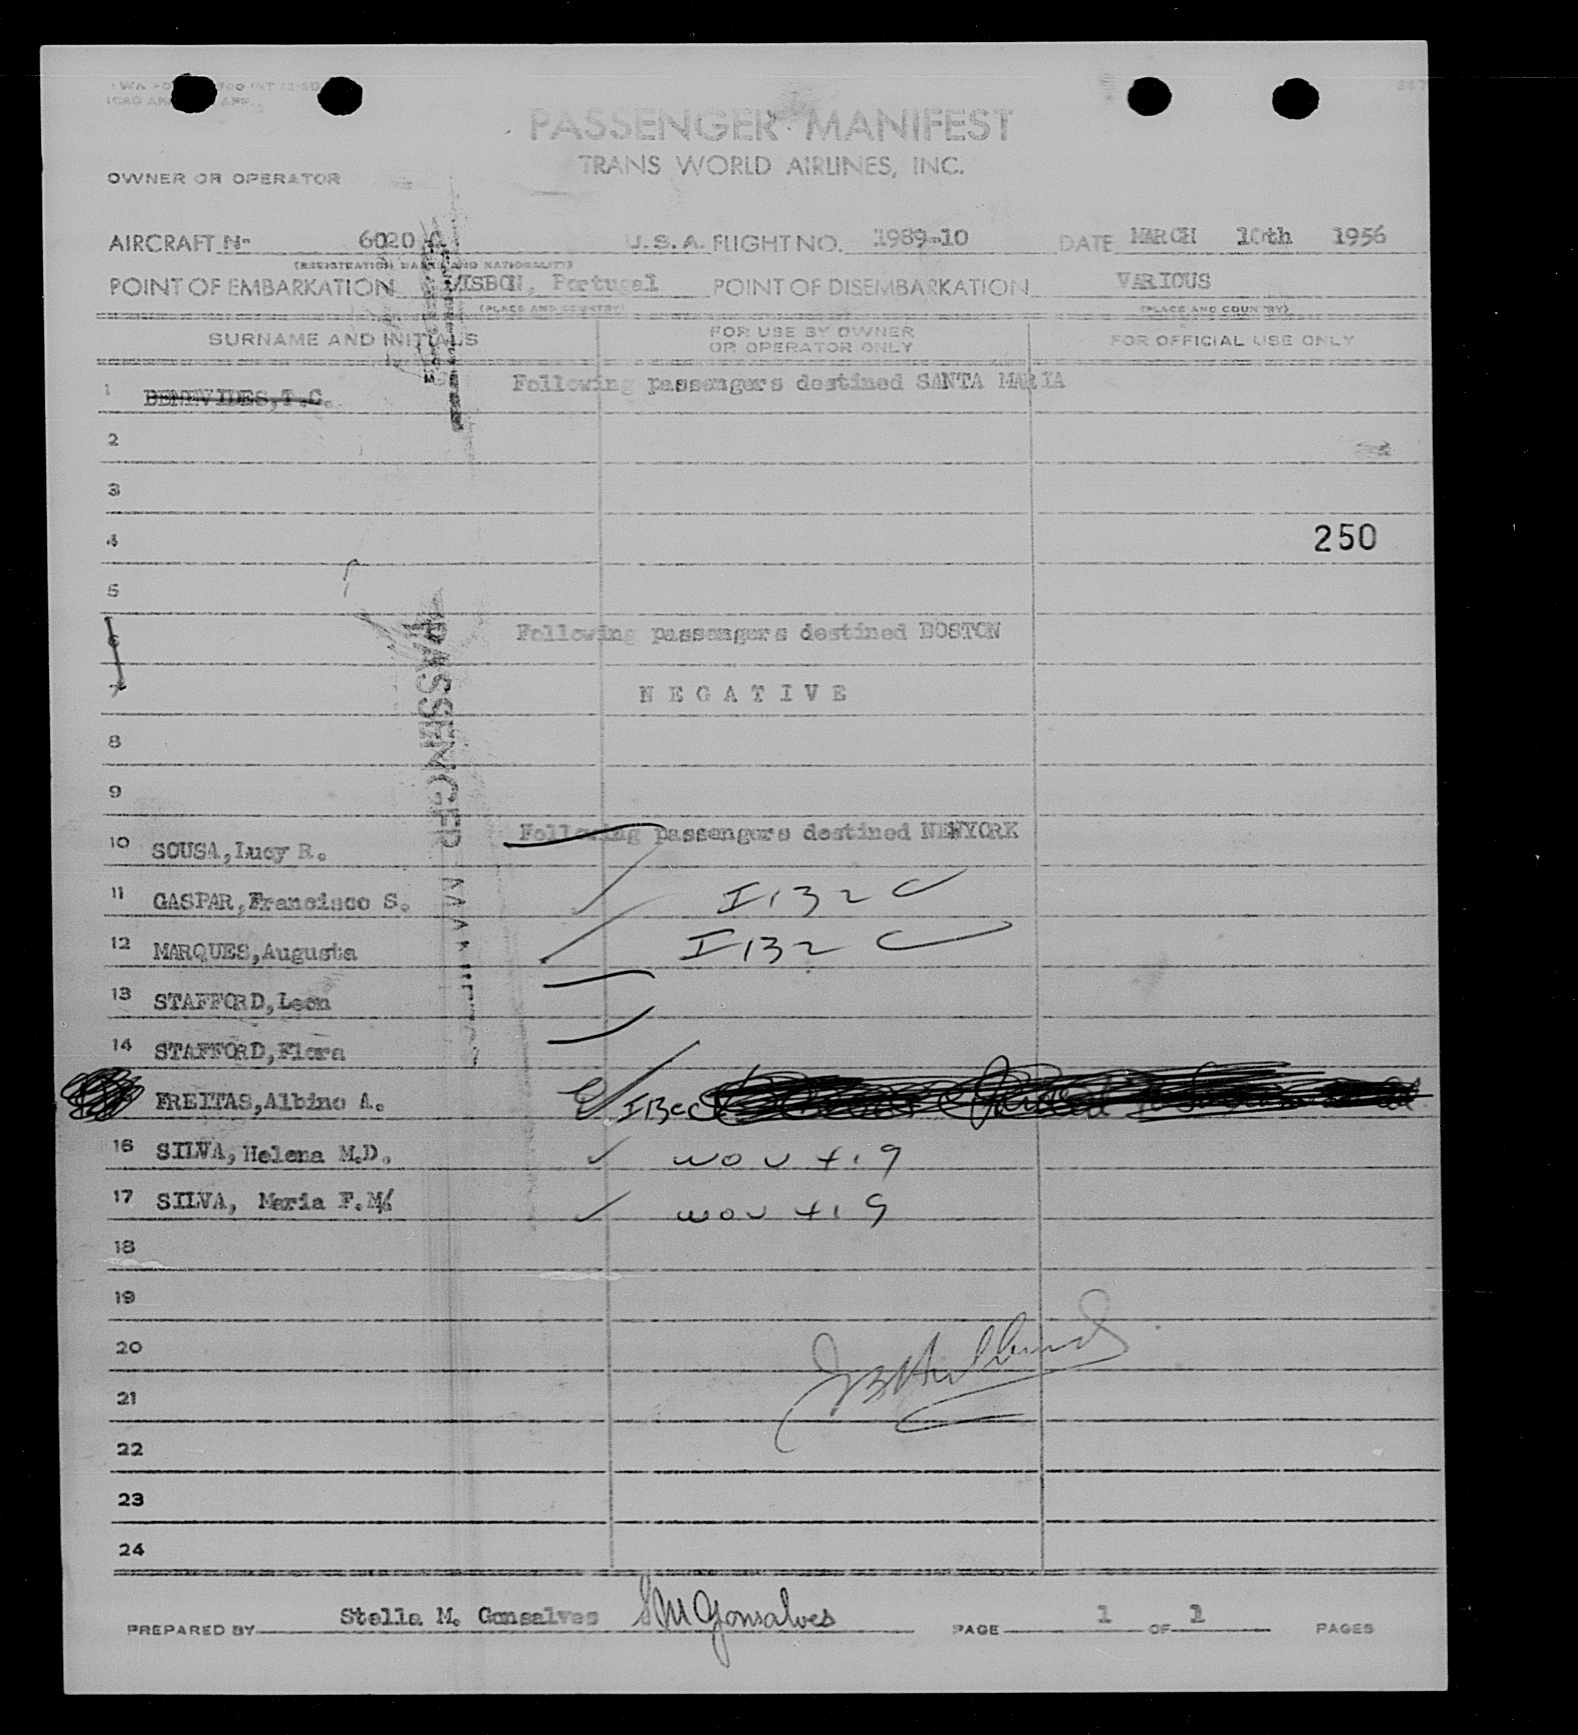 PASSENGER MANIFEST
TRANS WORLD AIRLINES, INC.
OWNER OR OPERATOR
AIRCRAFT N- 6020 C U.S.A. FLIGHT NO. 1989-10 DATE MARCH 10th 1956
(REGISTRATION MARKS AND NATIONALITY)
POINT OF EMBARKATION LISBON, Portugal POINT OF DISEMBARKATION VARIOUS
(PLACE AND COUNTRY) (PLACE AND COUNTRY)
SURNAME AND INITIALS FOR USE BY OWNER OR OPERATOR ONLY FOR OFFICIAL USE ONLY
Following passengers destined SANTA MARIA
1 BENEVIDES,T.C.
2
3
4 250
5
6 Following passengers destined BOSTON
7 N E G A T I V E
8
9
Following passengers destined NEWYORK
10 SOUSA,Lucy R.
11 GASPAR,Francisco S. I 132 C
12 MARQUES,Augusta I 132 C
13 STAFFORD,Leon
14 STAFFORD,Flora
FREITAS,Albino A.
16 SILVA,Helena M.D.
17 SILVA, Maria F.M.
18
19
20
21
22
23
24
PASSENGER MANIFEST
PREPARED BY Stella M. Gonsalves SM Gonsalves PAGE 1 OF 1 PAGES